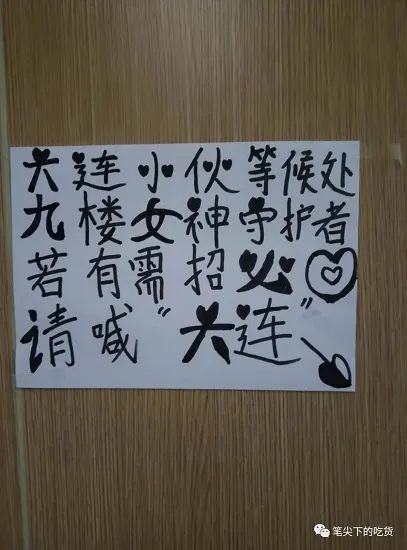 六连小伙等候处
九楼女神守护者
若有需招必
请喊"六连"
笔尖下的吃货